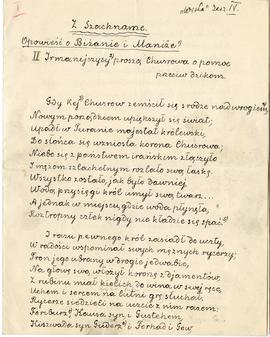 I
"Wisła" Zesz. IV.
Z Szachname.
Opowieść o Biżanie i Maniże¹)
II Irmanijczycy²) proszą Chusrowa o pomoc
przeciw dzikom.
Gdy Kej Chusrew zemścił się srodze nad wrogiem,
Nowym porządkiem upiększył się świat;
Upadł w Turanie majestat królewski,
Do słońca się wzniosła korona Chusrewa;
Niebo się z państwem irańskim złączyło
I mężom szlachetnym rozlało swą łaskę.
Wszystko zostało, jak było dawniej
Wodą przysięgi król umył swą twarz...
A jednak w miejscu, gdzie woda płynęła,
Roztropny człek nigdy nie kładzie się spać³)
I razu pewnego król zasiadł do uczty,
W radości wspominał swych mężnych rycerzy;
Tron jego ubrany w drogie jedwabie,
Na głowę swą włożył koronę z djamentów,
Z rubinu miał kielich do wina, w swej ręce,
Uchem i sercem na lutni gry słuchał;
Rycerze siedzieli na uczcie z nim razem:
Feriburz, Kausa syn i Gustehem
Hiszwada syn Guderz i Ferhad i Gew